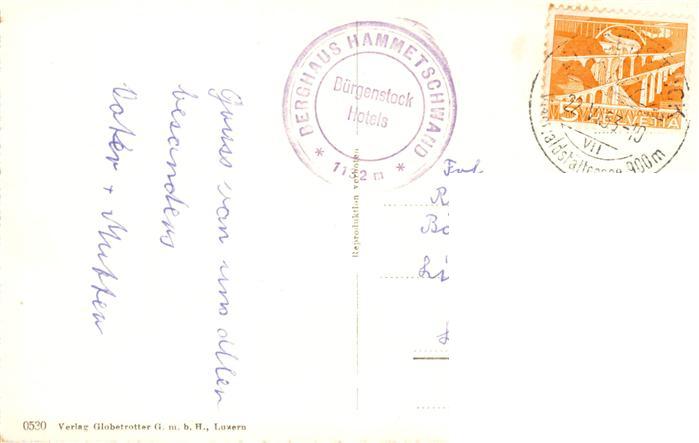 Gruss von uns allen
besonders
Vater + Mutter
BERGHAUS HAMMETSCHWAND
Bürgenstock
Hotels
* 1132 m *
HELVETIA
5
VII
900m
Reproduktion verboten
Frl.
0520 Verlag Globetrotter G. m. b. H., Luzern